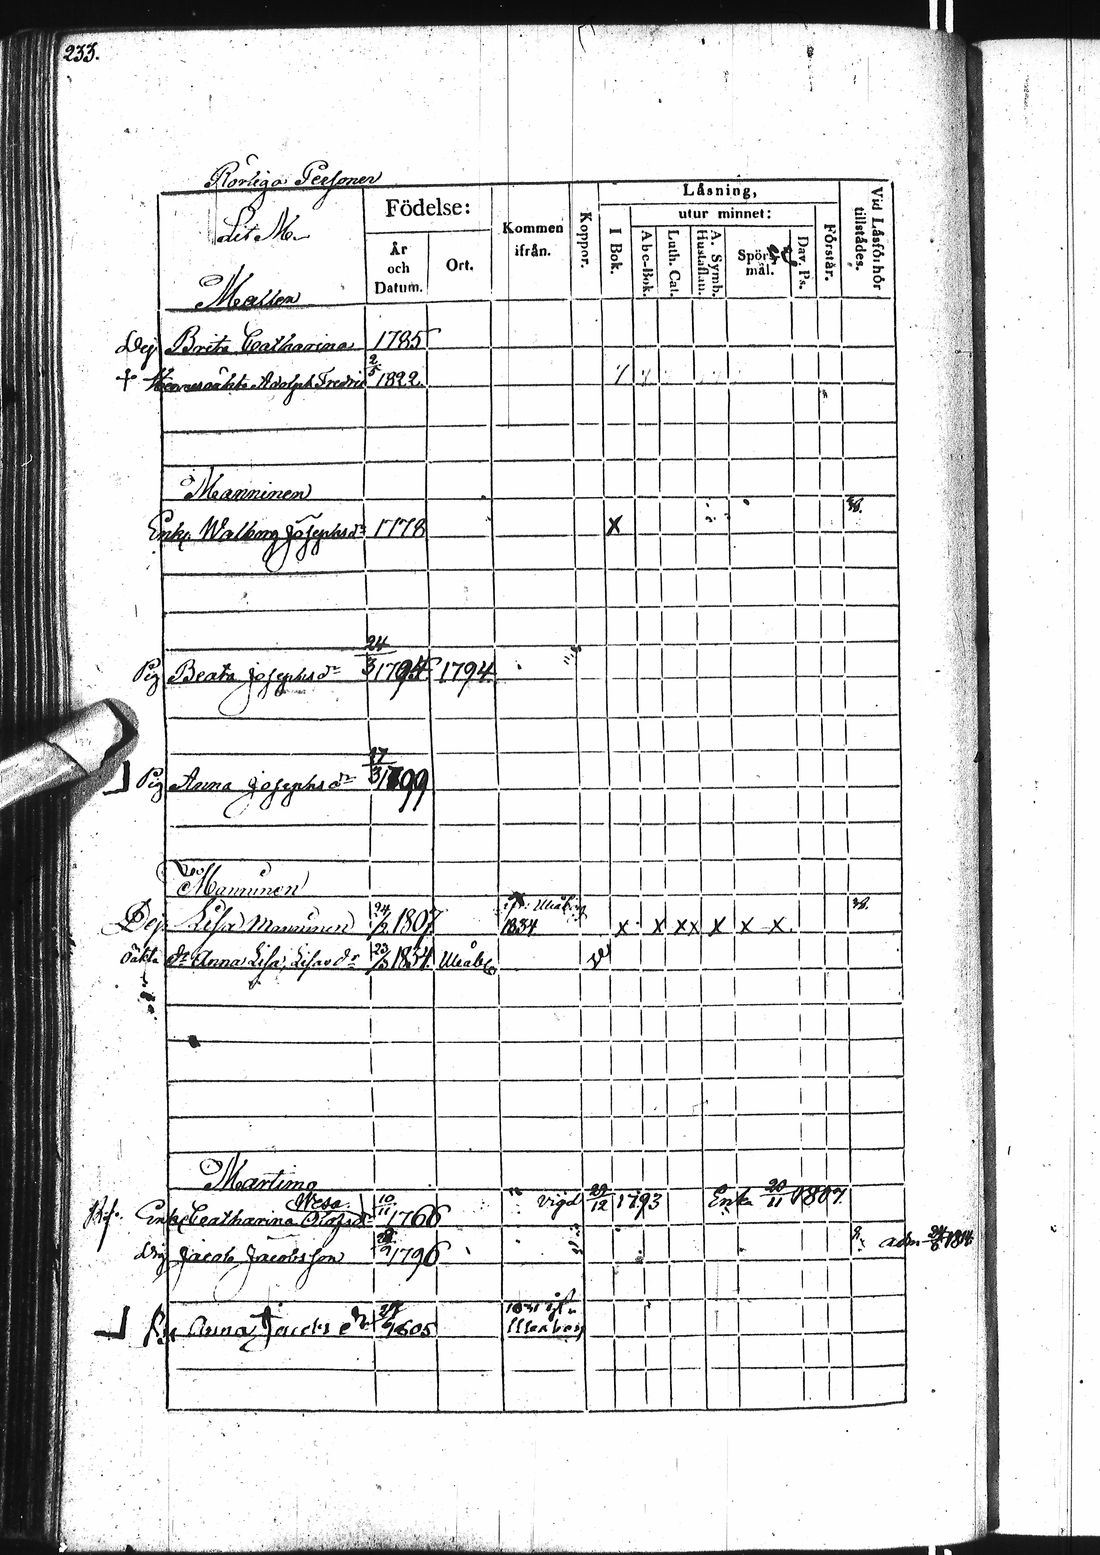 233.
Rörliga Personer
Lit M.
Födelse:
År och Datum.
Ort.
Kommen ifrån.
Koppor.
Läsning,
I Bok.
utur minnet:
Abc-Bok.
Luth. Cat.
A. Symb. Hustaflan.
Spörsmål.
Dav. Ps.
Förstår.
Vid Läsförhör tillstådes.
Matten
Dej Brita Catharina 1785
† Adolph Fredric 2/5 1822.
Manninen
Enka Walborg Josephsdr 1778 X 38.
Pig Beata Josephsdr 24/3 1794 1794.
Pig Anna Josephsdr 17/3 1799
Manninen
Dej Lisa Manninen 24/2 1807 ifr. Uleåborg 1834 X X XX X X X. 38.
oäkta dr Anna Lisa, Lisasdr 23/3 1834. Uleåbg v
Martimo
Enka Catharina Olofsdr Wesa 10/11 1766 Vigd 29/12 1793 Enka 20/11 1807
Drg Jacob Jacobsson 1796 adm
Pig Anna Jacobs dr 1805 1831 ifr Uleåborg